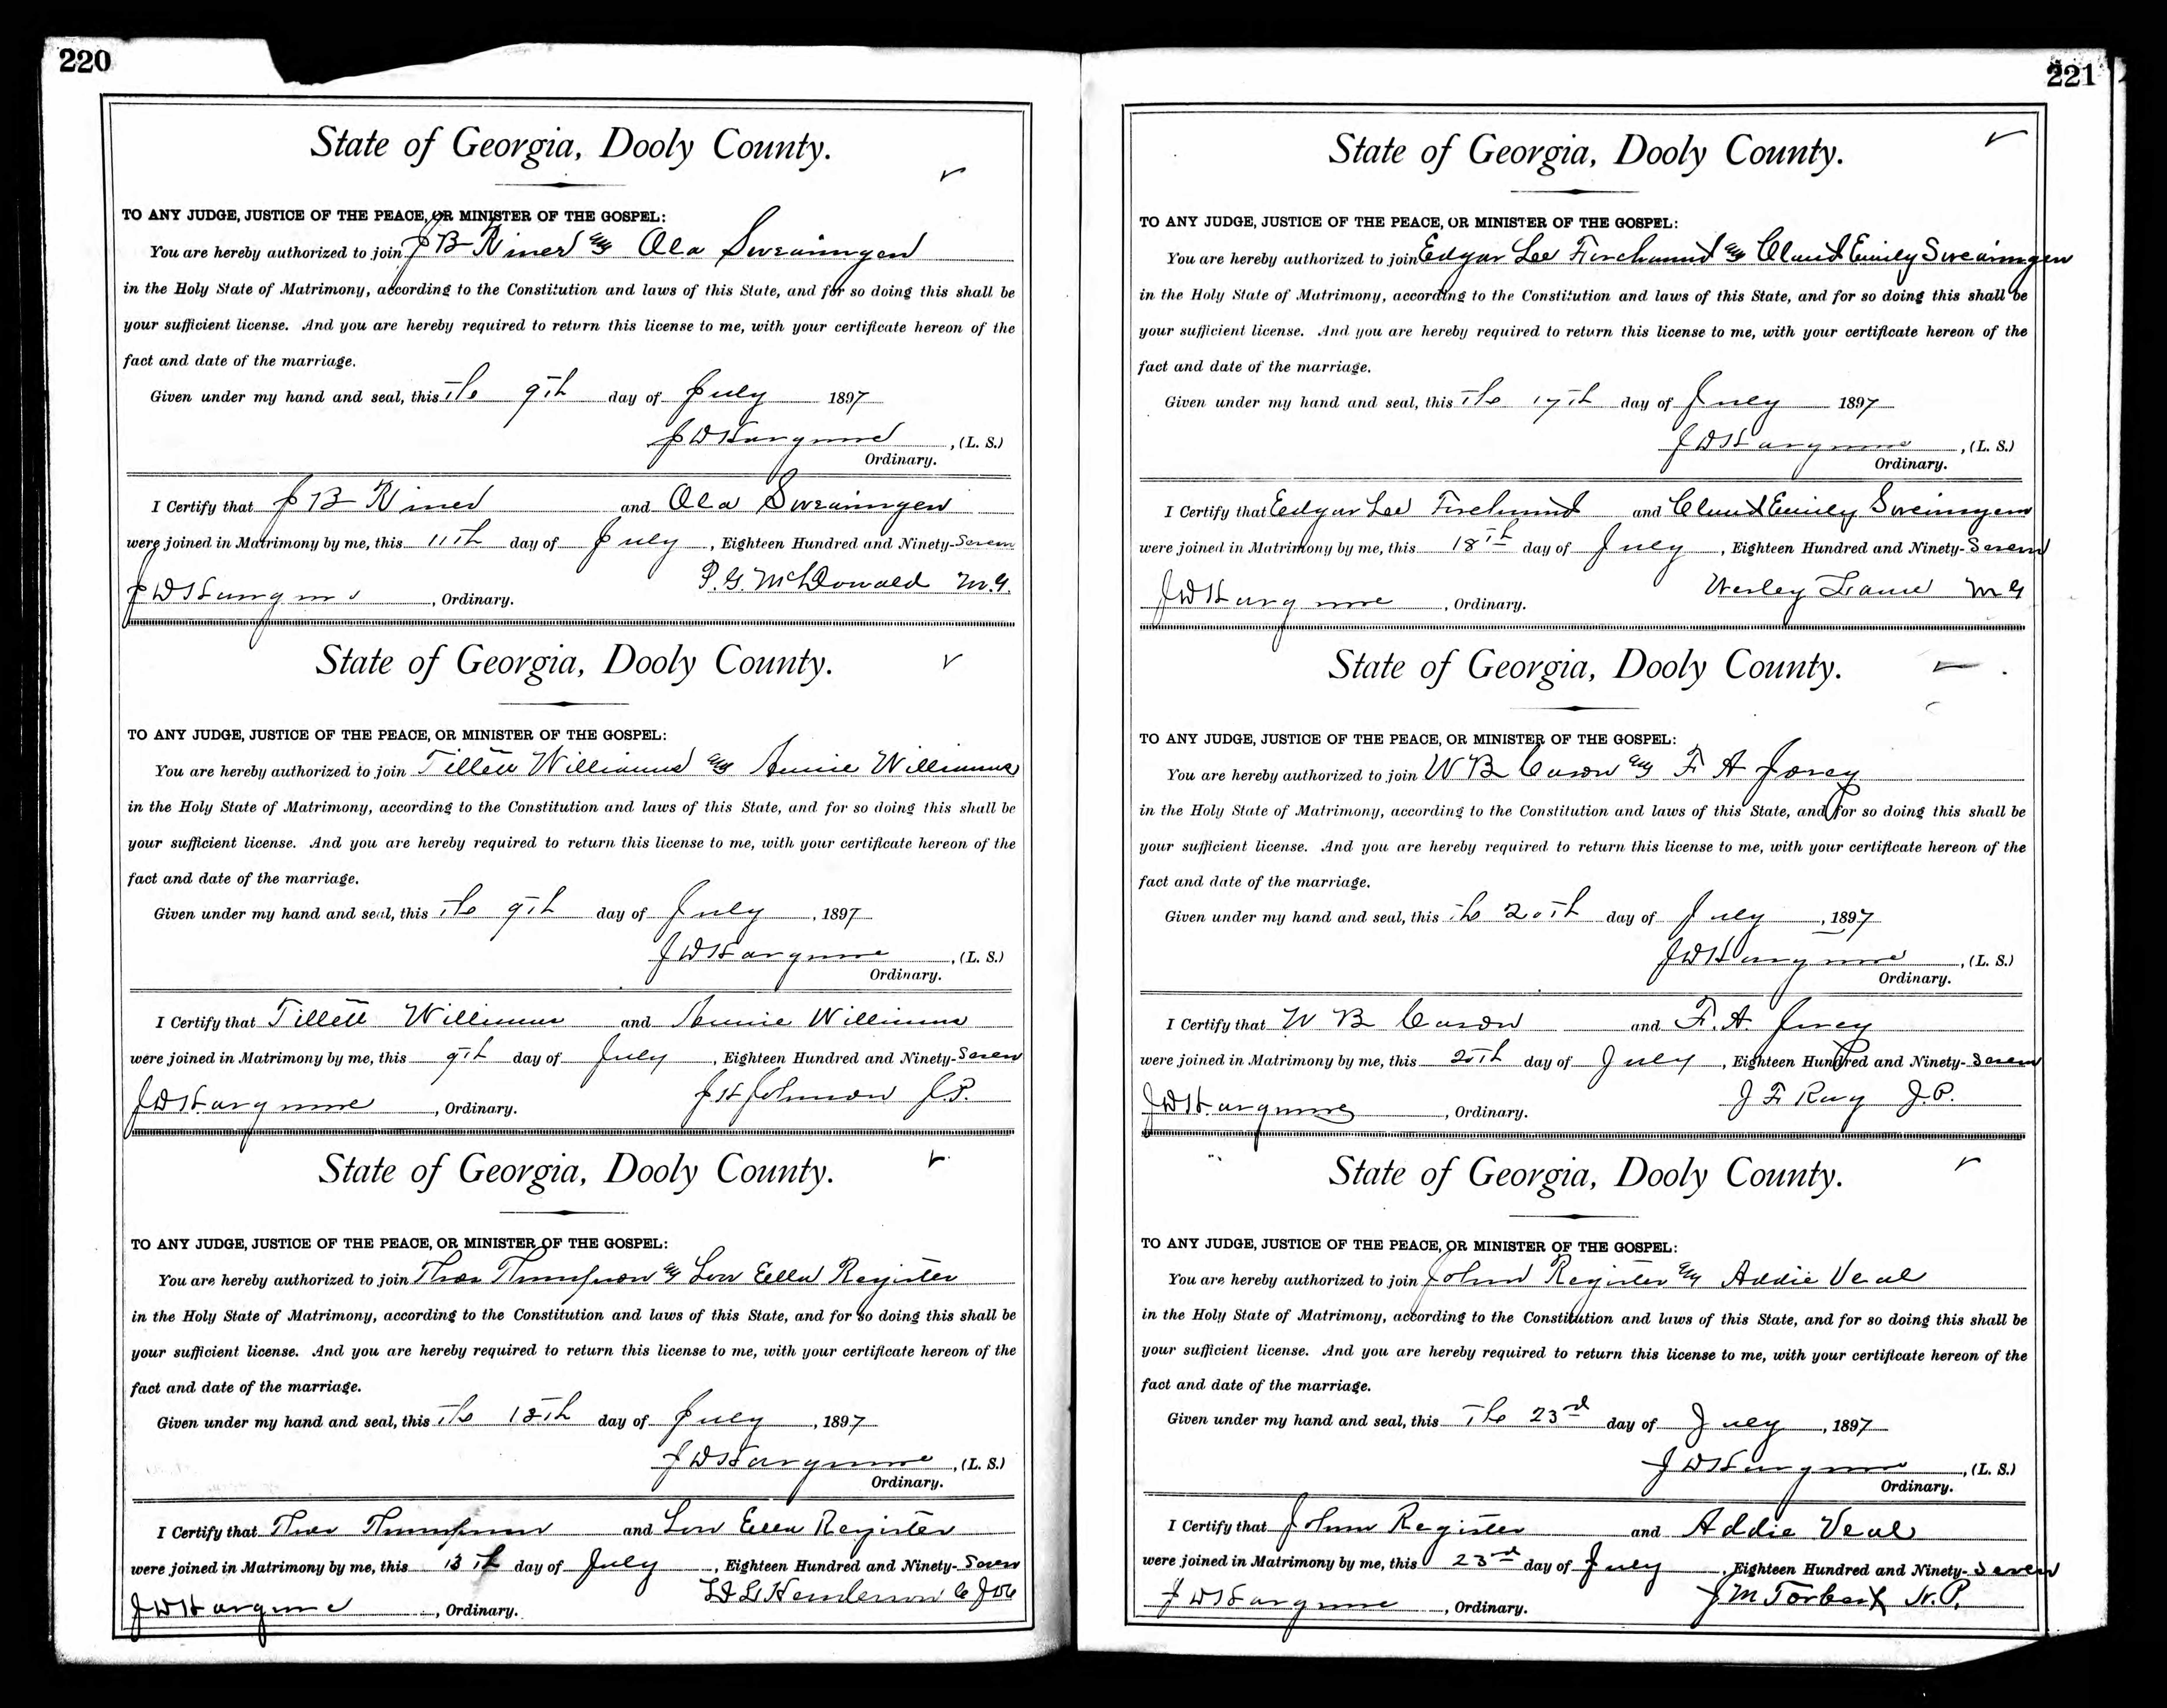 220
State of Georgia, Dooly County.
TO ANY JUDGE, JUSTICE OF THE PEACE, OR MINISTER OF THE GOSPEL:
You are hereby authorized to join J B Riner & Ola Swearingen
in the Holy State of Matrimony, according to the Constitution and laws of this State, and for so doing this shall be
your sufficient license. And you are hereby required to return this license to me, with your certificate hereon of the
fact and date of the marriage.
Given under my hand and seal, this the 9th day of July 1897
J D Hargrove, (L. S.)
Ordinary.
I Certify that J B Riner and Ola Swearingen
were joined in Matrimony by me, this 11th day of July, Eighteen Hundred and Ninety-Seven
P. G McDonald M.G.
J D Hargrove, Ordinary.
State of Georgia, Dooly County.
TO ANY JUDGE, JUSTICE OF THE PEACE, OR MINISTER OF THE GOSPEL:
You are hereby authorized to join Tillett Williams & Annie Williams
in the Holy State of Matrimony, according to the Constitution and laws of this State, and for so doing this shall be
your sufficient license. And you are hereby required to return this license to me, with your certificate hereon of the
fact and date of the marriage.
Given under my hand and seal, this the 9th day of July, 1897
J D Hargrove, (L. S.)
Ordinary.
I Certify that Tillett Williams and Annie Williams
were joined in Matrimony by me, this 9th day of July, Eighteen Hundred and Ninety-Seven
J H Johnson J.P.
J D Hargrove, Ordinary.
State of Georgia, Dooly County.
TO ANY JUDGE, JUSTICE OF THE PEACE, OR MINISTER OF THE GOSPEL:
You are hereby authorized to join Thos Thompson & Lou Ella Register
in the Holy State of Matrimony, according to the Constitution and laws of this State, and for so doing this shall be
your sufficient license. And you are hereby required to return this license to me, with your certificate hereon of the
fact and date of the marriage.
Given under my hand and seal, this the 13th day of July, 1897
J D Hargrove, (L. S.)
Ordinary.
I Certify that Thos Thompson and Lou Ella Register
were joined in Matrimony by me, this 13th day of July, Eighteen Hundred and Ninety-Seven
Henderson
J D Hargrove, Ordinary.
221
State of Georgia, Dooly County.
TO ANY JUDGE, JUSTICE OF THE PEACE, OR MINISTER OF THE GOSPEL:
You are hereby authorized to join Edgar Lee & Emily Swearingen
in the Holy State of Matrimony, according to the Constitution and laws of this State, and for so doing this shall be
your sufficient license. And you are hereby required to return this license to me, with your certificate hereon of the
fact and date of the marriage.
Given under my hand and seal, this the 17th day of July 1897
J D Hargrove, (L. S.)
Ordinary.
I Certify that Edgar Lee and Emily Swearingen
were joined in Matrimony by me, this 18th day of July, Eighteen Hundred and Ninety-Seven
Wesley M G
J D Hargrove, Ordinary.
State of Georgia, Dooly County.
TO ANY JUDGE, JUSTICE OF THE PEACE, OR MINISTER OF THE GOSPEL:
You are hereby authorized to join W B Cason & F A Posey
in the Holy State of Matrimony, according to the Constitution and laws of this State, and for so doing this shall be
your sufficient license. And you are hereby required to return this license to me, with your certificate hereon of the
fact and date of the marriage.
Given under my hand and seal, this the 20th day of July, 1897
J D Hargrove, (L. S.)
Ordinary.
I Certify that W B Cason and F. A. Posey
were joined in Matrimony by me, this 20th day of July, Eighteen Hundred and Ninety-Seven
J F Ray J.P.
J D Hargrove, Ordinary.
State of Georgia, Dooly County.
TO ANY JUDGE, JUSTICE OF THE PEACE, OR MINISTER OF THE GOSPEL:
You are hereby authorized to join John Register & Addie Veal
in the Holy State of Matrimony, according to the Constitution and laws of this State, and for so doing this shall be
your sufficient license. And you are hereby required to return this license to me, with your certificate hereon of the
fact and date of the marriage.
Given under my hand and seal, this the 23rd day of July, 1897
J D Hargrove, (L. S.)
Ordinary.
I Certify that John Register and Addie Veal
were joined in Matrimony by me, this 23rd day of July, Eighteen Hundred and Ninety-Seven
J M Torbert N. P.
J D Hargrove, Ordinary.